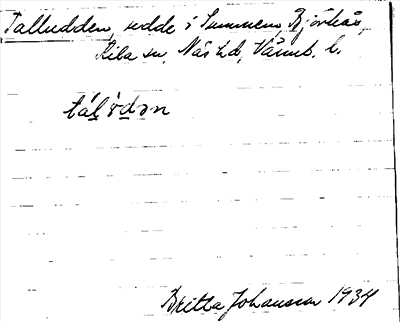 Talludden, udde i Summeren, Björkås,
Kila sn, Näs hd, Värml. l.
tálɵdən
Britta Johansson 1934